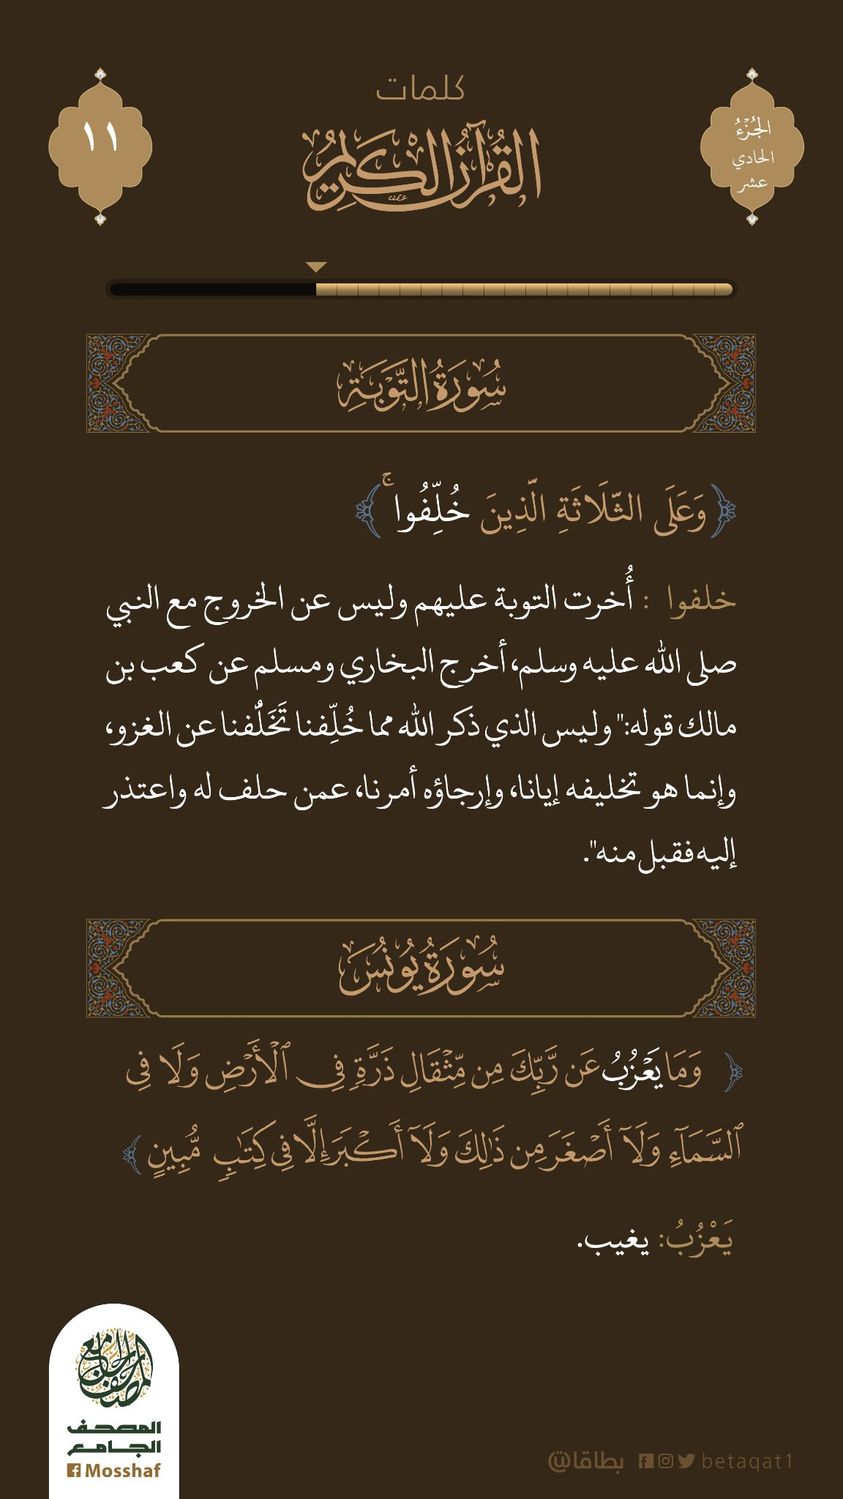 كلمات
القُرآنُ الكَرِيمُ
الجُزْءُ
الحادي
عشر
١١
سُورَةُ التَّوْبَةِ
﴿وَعَلَى الثَّلَاثَةِ الَّذِينَ خُلِّفُوا ۚ﴾
خلفوا : أُخرت التوبة عليهم وليس عن الخروج مع النبي
صلى الله عليه وسلم، أخرج البخاري ومسلم عن كعب بن
مالك قوله:" وليس الذي ذكر الله مما خُلِّفنا تَخَلُّفنا عن الغزو،
وإنما هو تخليفه إيانا، وإرجاؤه أمرنا، عمن حلف له واعتذر
إليه فقبل منه".
سُورَةُ يُونُسَ
﴿ وَمَا يَعْزُبُ عَن رَّبِّكَ مِن مِّثْقَالِ ذَرَّةٍ فِي ٱلْأَرْضِ وَلَا فِي
ٱلسَّمَآءِ وَلَآ أَصْغَرَ مِن ذَٰلِكَ وَلَآ أَكْبَرَ إِلَّا فِي كِتَٰبٍ مُّبِينٍ ﴾
يَعْزُبُ: يغيب.
المصحف الجامع
المصحف
الجامع
Mosshaf
بطاقا@ betaqat1